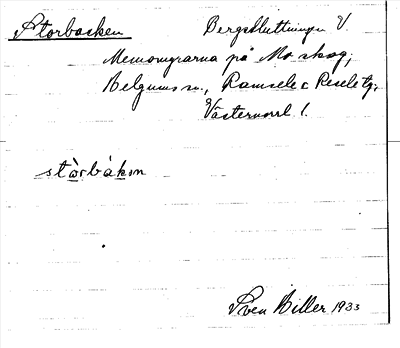 Storbacken Bergsluttningen V
Memomyrarna på Mo skog,
Helgums sn, Ramsele o Resele tg,
Västernorrl l.
stòrbàkən
Sven Hiller 1933